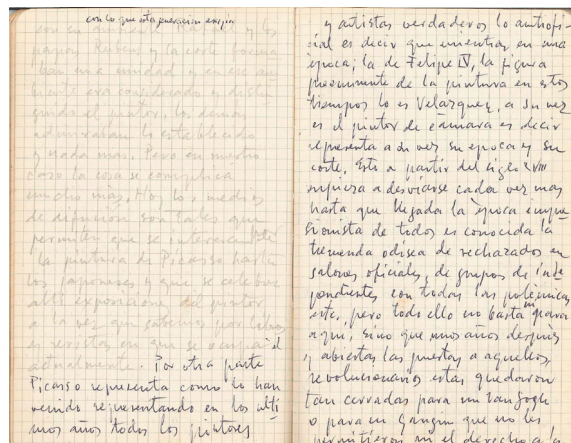 con lo que esta generacion exigia
papas. Rubens y la corte forma
ban una unidad y en ese am
biente era considerado y distin
guido el pintor, los demas
admiraban lo establecido
y nada mas. Pero en nuestro
caso la cosa se complica
mucho más. Hoy los medios
de difusion son tales que
permiten que se interesen
la pintura de Picasso hasta
los japoneses y que se celebre
allí exposiciones del pintor
a vez que sabemos por libros
es revistas en que se ocupa él
actualmente. Por otra parte
Picasso representa como lo han
venido representando en los ulti
mos años todos los pintores
y artistas verdaderos lo antiofi-
cial es decir que mientras en una
epoca, la de Felipe IV, la figura
preeminente de la pintura en estos
tiempos lo es Velazquez, a su vez
es el pintor de cámara es decir
representa a su vez su epoca y su
corte. Esto a partir del siglo XVIII
empieza a desviarse cada vez mas
hasta que llegada la época impre
sionista de todos es conocida la
tremenda odisea de rechazados en
salones oficiales, de grupos de inde
pendientes con todas las polemicas
este, pero todo ello no basta para
aqui, sino que unos años después
y abiertas las puertas a aquellos
revolucionarios estas quedaron
tan cerradas para un Van Gogh
o para un Gauguin que no les
permitieron ni el derecho a la